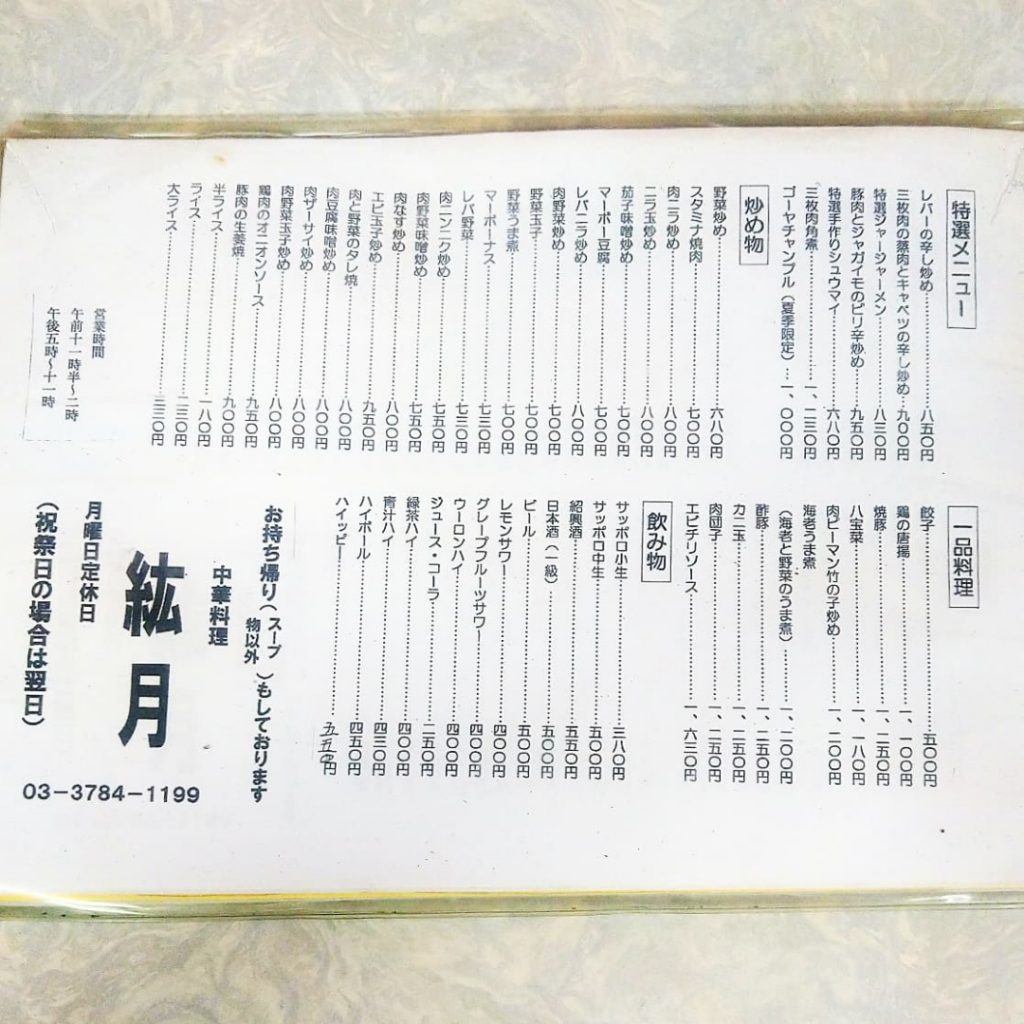 特選メニュー
レバーの辛し炒め………八五〇円
三枚肉の蒸肉とキャベツの辛し炒め…九〇〇円
特選ジャージャーメン………八三〇円
豚肉とジャガイモのピリ辛炒め…九五〇円
特選手作りシュウマイ………六八〇円
三枚肉角煮………一、二三〇円
ゴーヤチャンプル(夏季限定)…一、〇〇〇円
炒め物
野菜炒め………六八〇円
スタミナ焼肉………七〇〇円
肉ニラ炒め………八〇〇円
ニラ玉炒め………八〇〇円
茄子味噌炒め………七〇〇円
マーボー豆腐………七〇〇円
レバニラ炒め………八〇〇円
肉野菜炒め………七〇〇円
野菜玉子………七〇〇円
野菜うま煮………七〇〇円
マーボーナス………七三〇円
レバ野菜………七三〇円
肉ニンニク炒め………七五〇円
肉野菜味噌炒め………七五〇円
肉なす炒め………八〇〇円
エビ玉子炒め………九五〇円
肉と野菜のタレ焼………八〇〇円
肉豆腐味噌炒め………八〇〇円
肉ザーサイ炒め………八〇〇円
肉野菜玉子炒め………八〇〇円
鶏肉のオニオンソース………九五〇円
豚肉の生姜焼………九〇〇円
半ライス………一八〇円
ライス………二三〇円
大ライス………三三〇円
営業時間
午前十一時半〜二時
午後五時〜十一時
一品料理
餃子………五〇〇円
鶏の唐揚………一、一〇〇円
焼豚………一、二五〇円
八宝菜………一、一八〇円
肉ピーマン竹の子炒め………一、二〇〇円
海老うま煮
(海老と野菜のうま煮)………一、二〇〇円
酢豚………一、二五〇円
カニ玉………一、二五〇円
肉団子………一、二五〇円
エビチリソース………一、六三〇円
飲み物
サッポロ小生………三八〇円
サッポロ中生………五〇〇円
紹興酒………五五〇円
日本酒(一級)………五〇〇円
ビール………五〇〇円
レモンサワー………四〇〇円
グレープフルーツサワー………四〇〇円
ウーロンハイ………四〇〇円
ジュース・コーラ………二五〇円
緑茶ハイ………四〇〇円
青汁ハイ………四三〇円
ハイボール………四五〇円
ハイッピー………五五〇円
お持ち帰り(スープ物以外)もしております
中華料理
紘月
月曜日定休日
(祝祭日の場合は翌日)
03-3784-1199